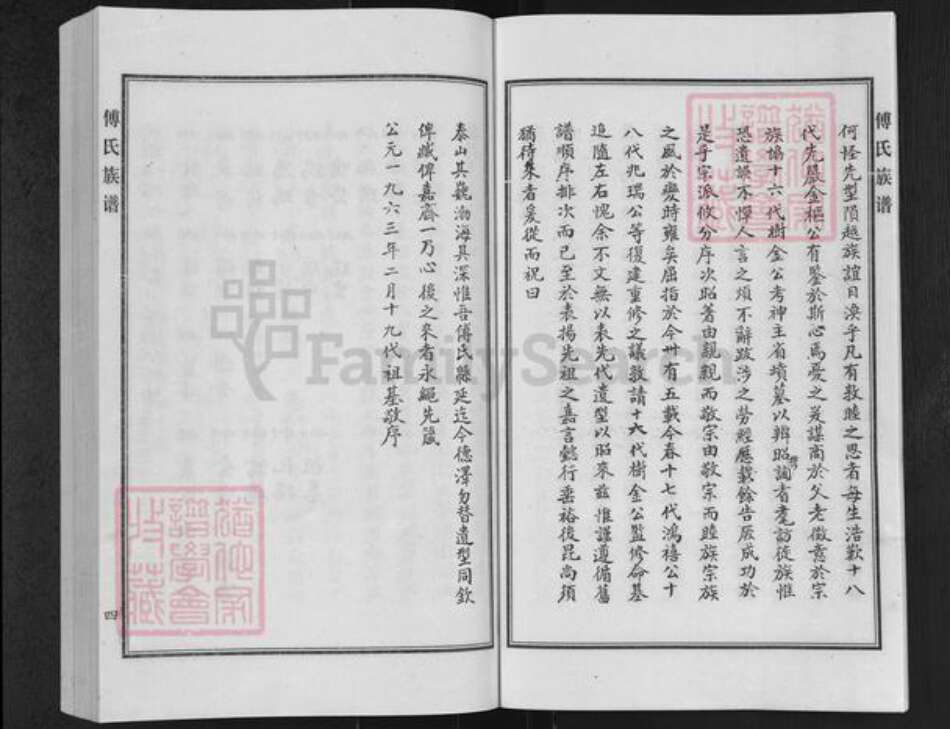 傅氏族谱
何怪先型陨越族誼日渙乎凡有敦睦之思者每生浩歎十八
代先嚴金樞公有鑒於斯心焉憂之爰謀商於父老徵意於宗
族協十六代樹金公考神主省墳墓以辨昭穆詢耆耄訪從族惟
恐遺誤不憚人言之煩不辭跋涉之勞經歷載餘告厥成功於
是乎宗派攸分序次昭著由親親而敬宗由敬宗而睦族宗族
之風於變時雍矣屈指於今卅有五載今春十七代鴻禧公十
八代兆瑞公等復建重修之議敦請十六代樹金公監修命基
追隨左右愧余不文無以表先代遺型以昭來茲惟謹遵備舊
譜順序排次而已至於表揚先祖之嘉言懿行垂裕後昆尚須
猶待來者爰從而祝曰
泰山其巍渤海其深惟吾傅氏綿延迄今德澤勿替遺型同欽
俾臧俾嘉齋一乃心後之來者永繩先箴
公元一九六三年二月十九代祖基敬序
傅氏族谱
四
FamilySearch